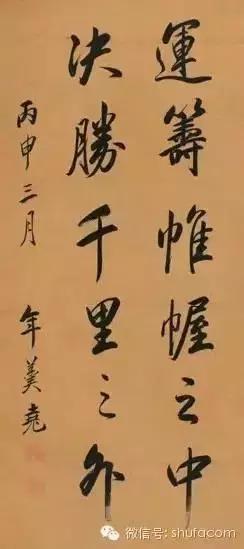 運籌帷幄之中
決勝千里之外
丙申三月
年羹堯
微信号: shufacom